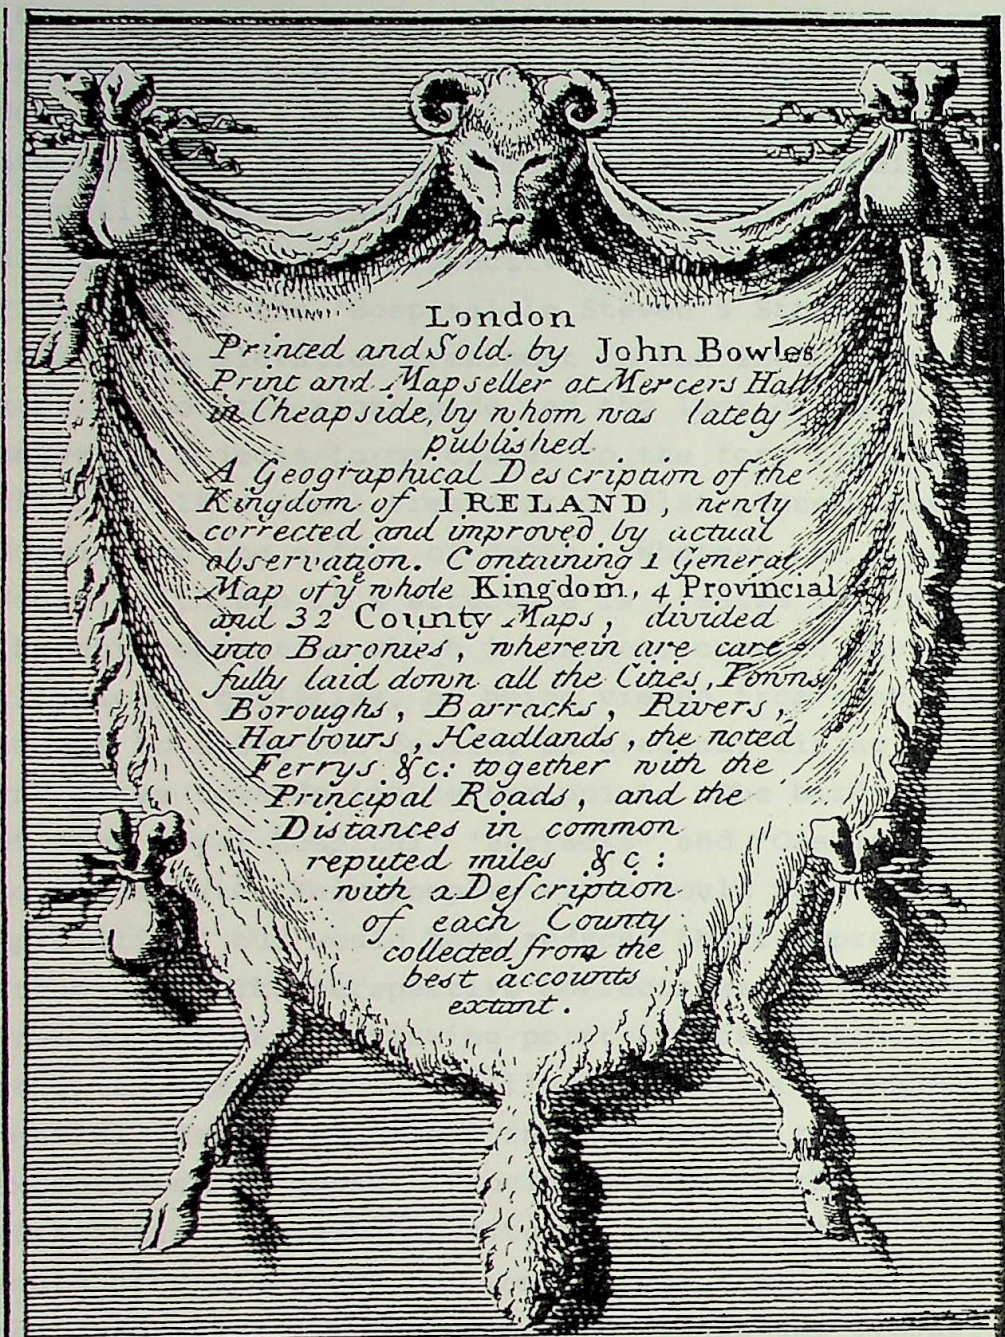 London
Printed and Sold by John Bowles
Print and Mapseller at Mercers Hall
in Cheapside, by whom was lately
published
A Geographical Description of the
Kingdom of IRELAND, newly
corrected and improved by actual
observation. Containing 1 General
Map of yᵉ whole Kingdom, 4 Provincial
and 32 County Maps, divided
into Baronies, wherein are care-
fully laid down all the Cities, Towns,
Boroughs, Barracks, Rivers,
Harbours, Headlands, the noted
Ferrys &c: together with the
Principal Roads, and the
Distances in common
reputed miles &c:
with a Deſcription
of each County
collected from the
best accounts
extant.